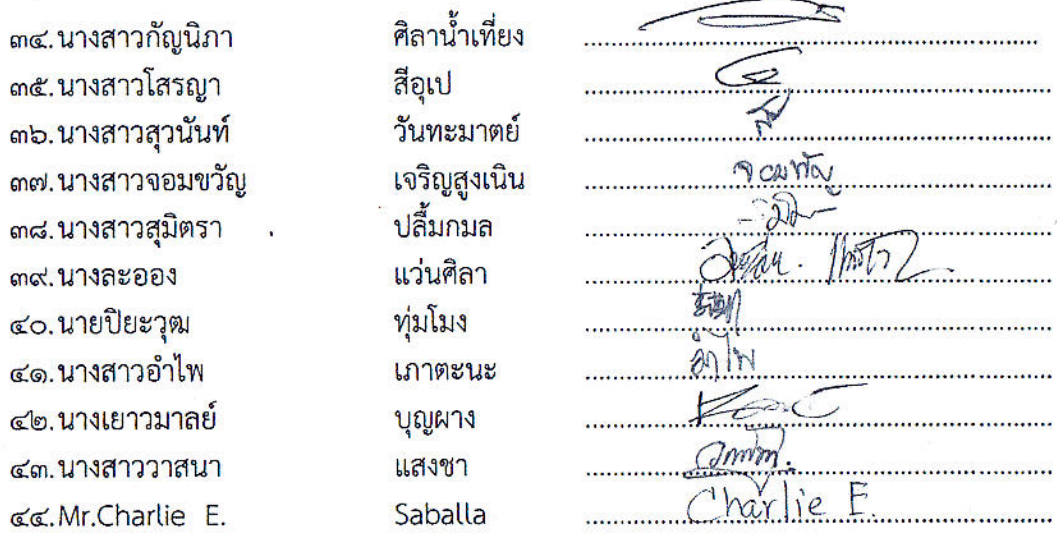 ๓๔.นางสาวกัญนิภา ศิลาน้ำเที่ยง
๓๕.นางสาวโสรญา สีอุเป
๓๖.นางสาวสุวนันท์ วันทะมาตย์
๓๗.นางสาวจอมขวัญ เจริญสูงเนิน จอมขวัญ
๓๘.นางสาวสุมิตรา ปลื้มกมล
๓๙.นางละออง แว่นศิลา
๔๐.นายปิยะวุฒ ทุ่มโมง
๔๑.นางสาวอำไพ เภาตะนะ อำไพ
๔๒.นางเยาวมาลย์ บุญผาง
๔๓.นางสาววาสนา แสงชา
๔๔.Mr.Charlie E. Saballa Charlie E.